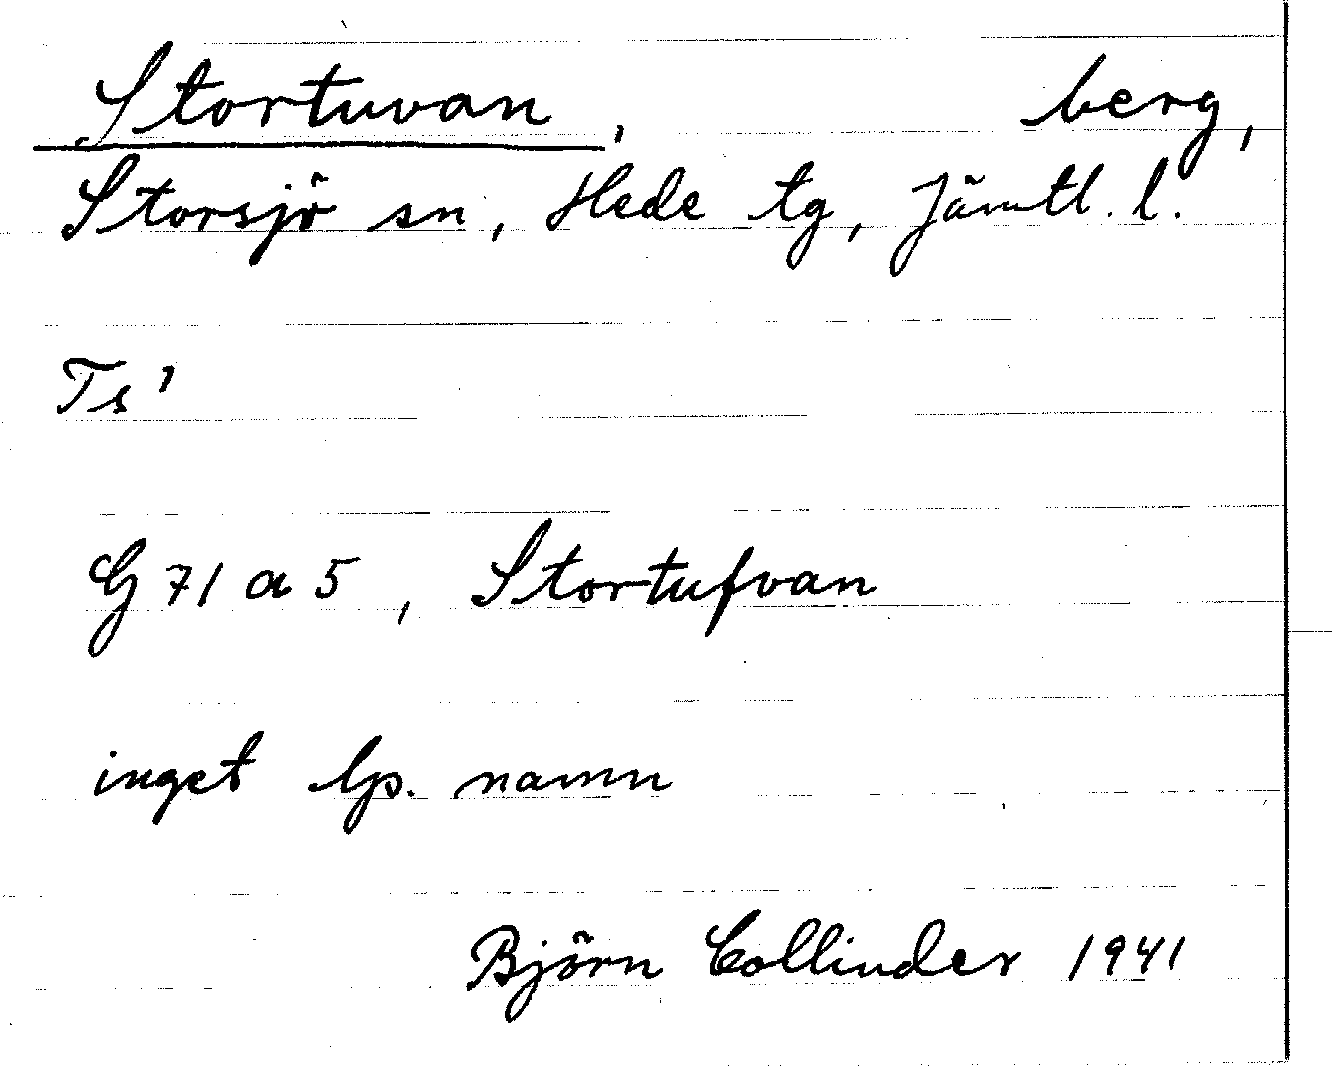 Stortuvan, berg,
Storsjö sn, Hede tg, Jämtl. l.
Ts 1
G 71 a 5, Stortufvan
inget lp. namn
Björn Collinder 1941